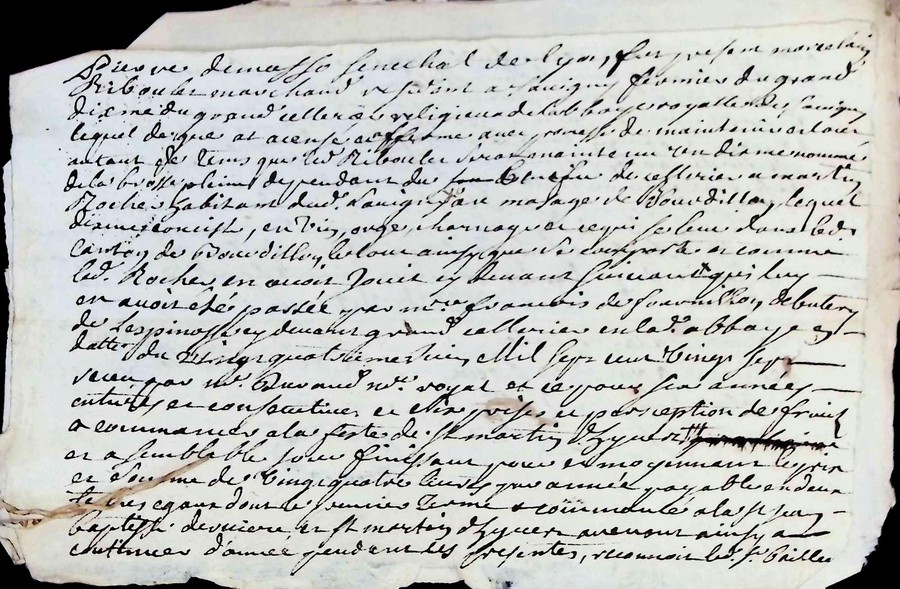 Pierre demasso senechal de Lyon, fut present marcelain
Riboulet marchand residant a Savigny fermier du grand
dixme du grand cellerier religieux de labbaye royalle de Savigny
lequel de gre at acensé et affermé avec promesse de maintenir et jouir
autant de tems que led. Riboulet sera maintenu un dixme nommé
de la brosse pleine dependant du de cellerier a martin
Roche habitant dud. Savigny au masage de Bourdillon, lequel
dixme consiste, en vin, orge, charnage et ce qui se leve dans led.
canton de Bourdillon le tout ainsy que se comporte et comme
led. Roche en avoit jouit cy devant suivant qui luy
en avoit eté passée par mre francois de de butery
de Lespinasse cy devant grand cellerier en lad. abbaye en
datte du vingt quatrieme juin Mil sept cent vingt sept
receu par me no.re royal et ce pour six années
entieres et consecutives et six prises et perception de fruits
a commancer a la feste de st martin d'hyver
et a semblable jour finissant pour et moyennant le prix
et somme de vingt quatre livres par année payable en deux
termes egaux dont le premier terme a commencé a la st jean
baptiste derniere et st martin d'hyver avenant ainsy a
continuer d'année pendant les presentes, reconnoit led. sr.